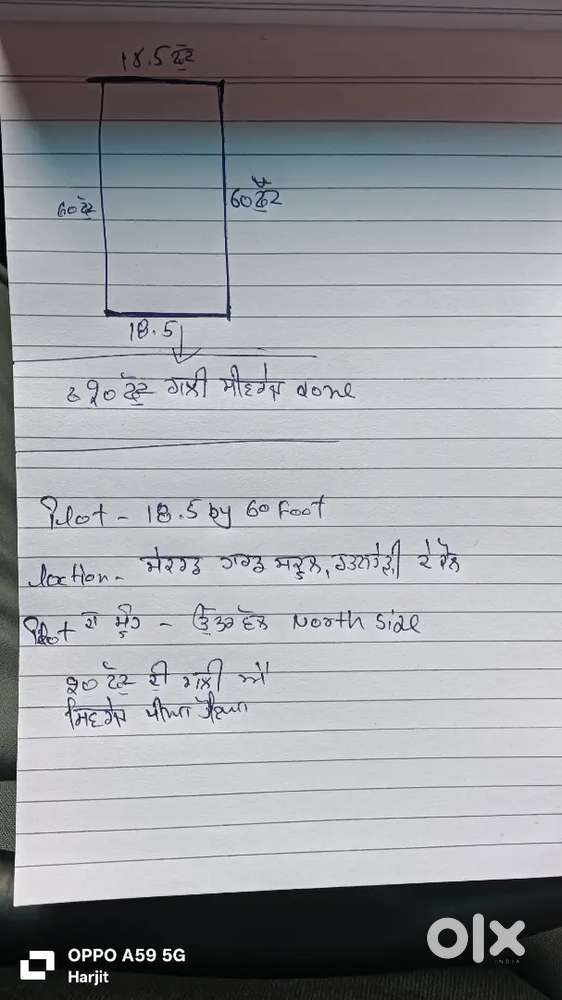 18.5 ਫੁੱਟ
60 ਫੁੱਟ
60 ਫੁੱਟ
18.5
20 ਫੁੱਟ ਗਲੀ ਸੀਵਰੇਜ done
Plot - 18.5 by 60 Foot
loction - ਸੇਕਰਡ ਹਾਰਟ ਸਕੂਲ, ਰਤਨਹੇੜੀ ਦੇ ਕੋਲ
Plot ਦਾ ਮੂੰਹ - ਉੱਤਰ ਵੱਲ North Side
20 ਫੁੱਟ ਦੀ ਗਲੀ ਐ
ਸਿਵਰੇਜ ਪੀਆ ਹੋਇਆ
OPPO A59 5G
Harjit
olx
INDIA